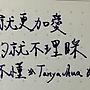 就更加愛
的就不理睬
不懂 Tanya Chua